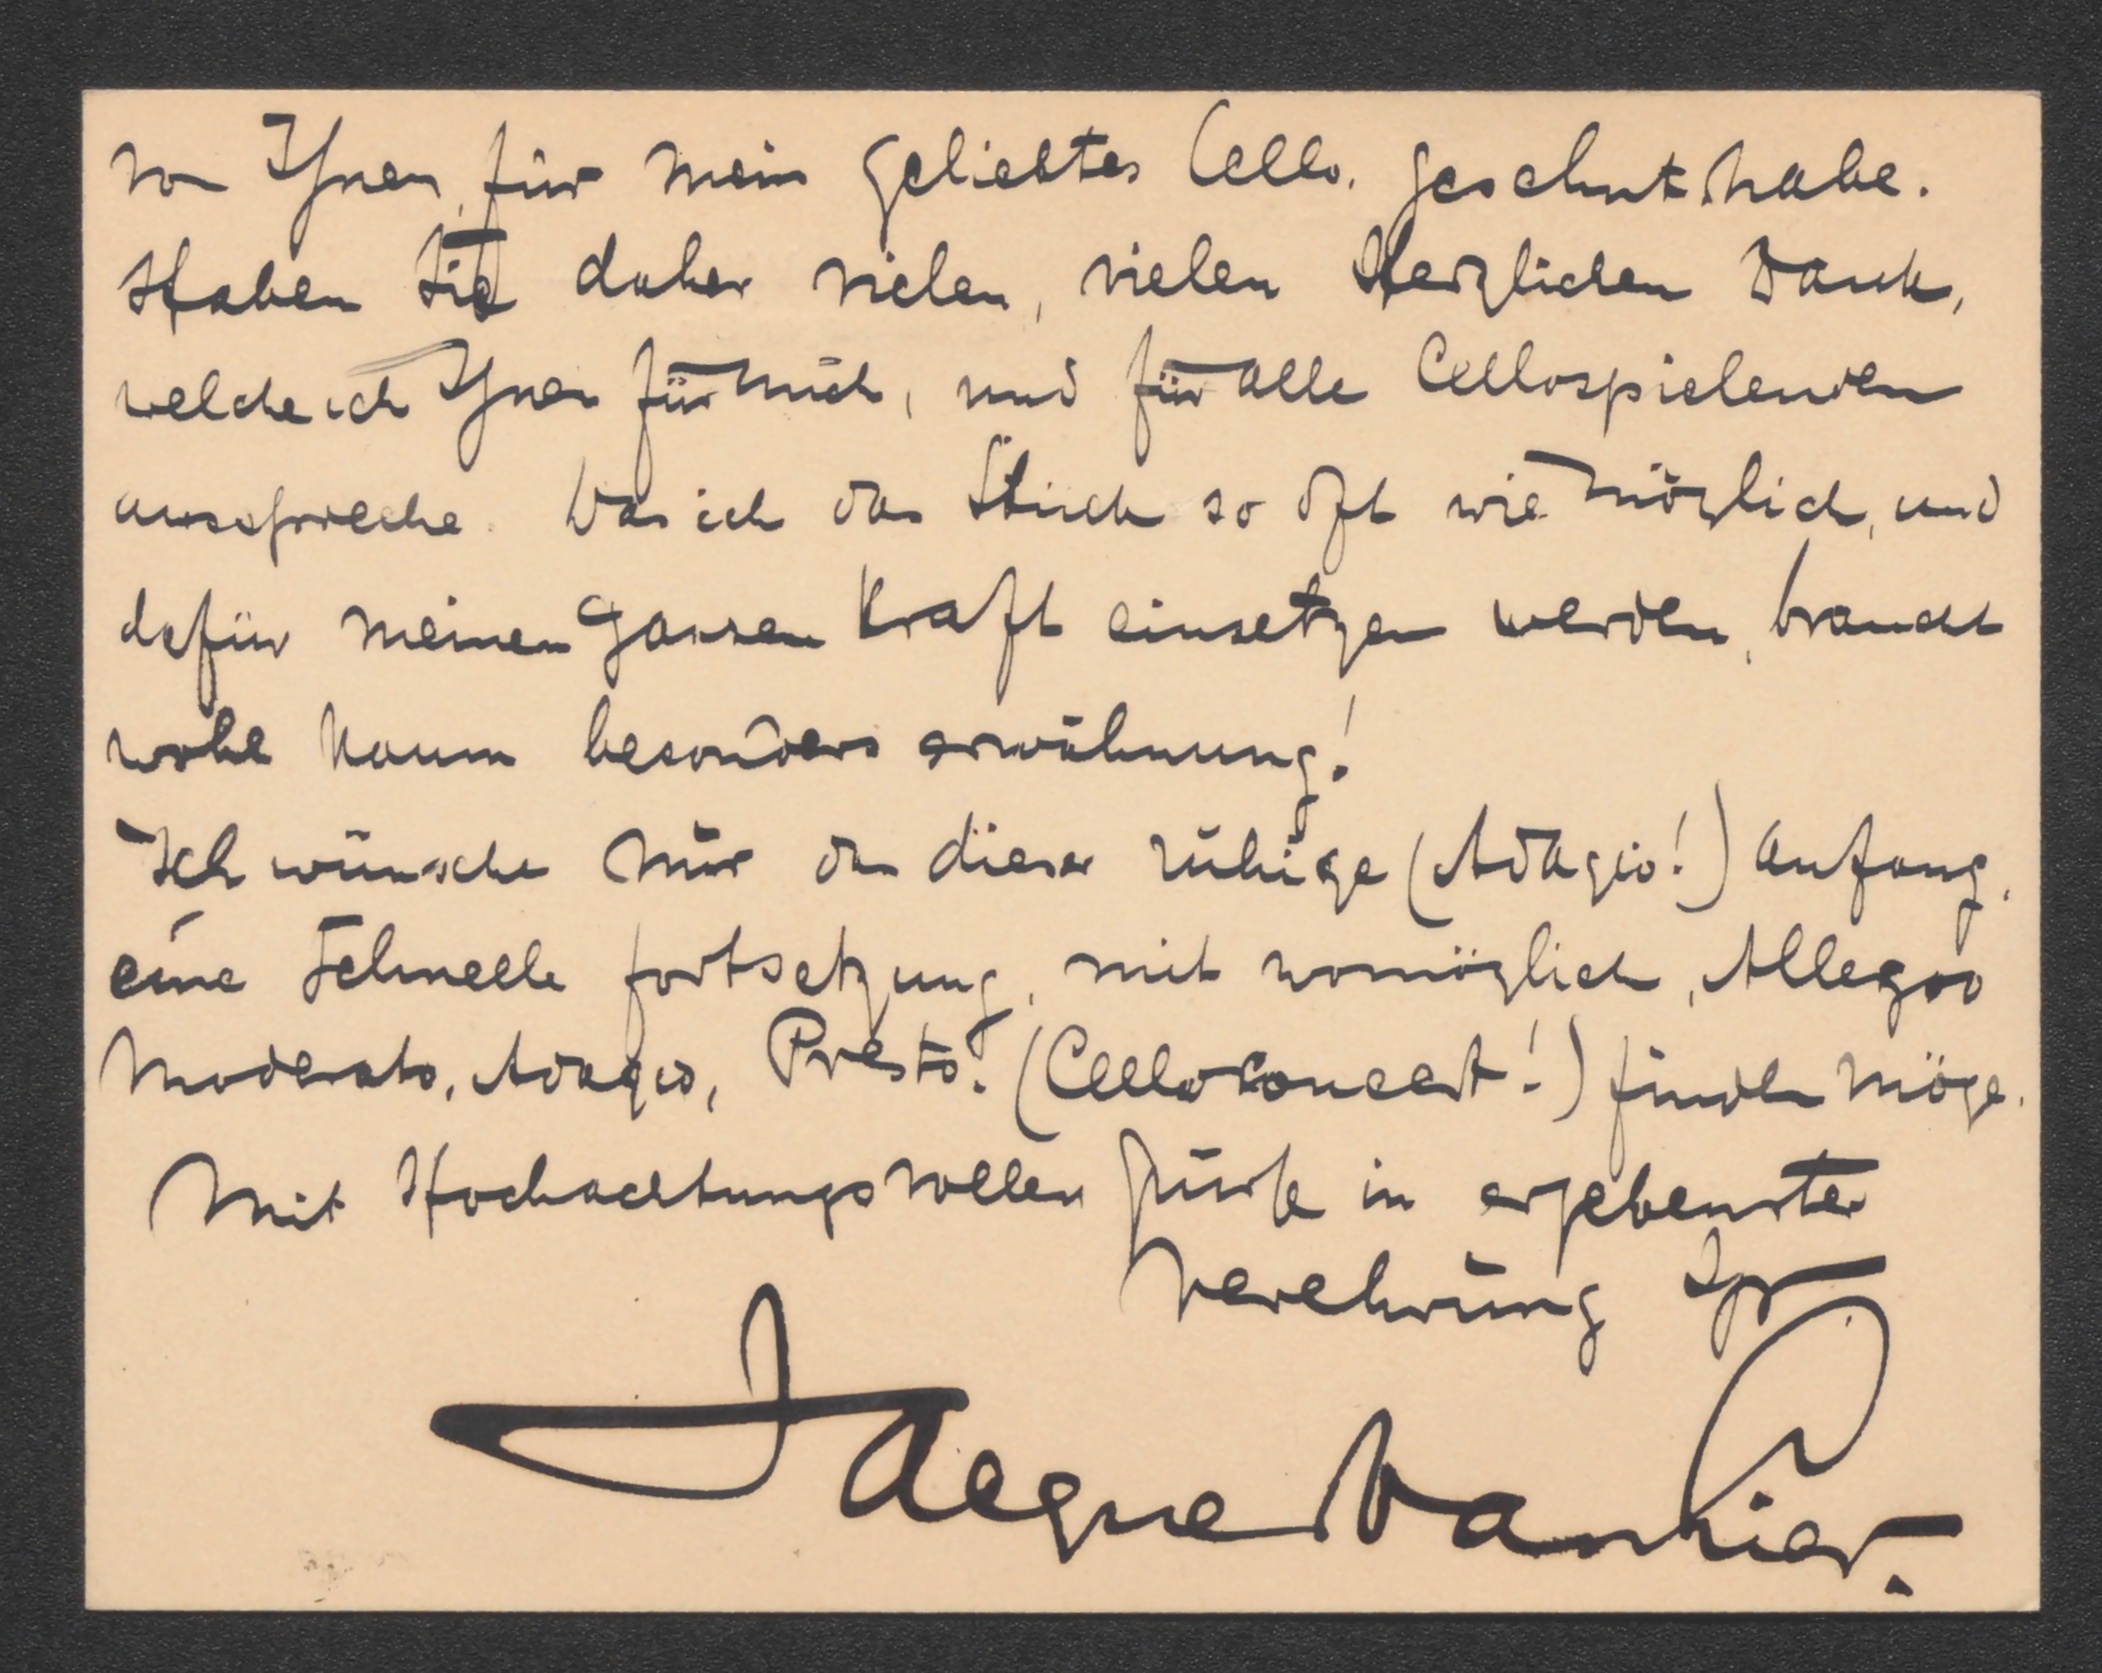 von Ihnen, für mein geliebtes Cello. gesehnt habe.
Haben Sie daher vielen, vielen Herzlichen Dank,
welche ich Ihnen für mich, und für alle Cellospielenden
ausspreche. Das ich das Stück so oft wie möglich, und
dafür meinen ganzen Kraft einsetzen werden, braucht
wohl kaum besonders erwähnung!
Ich wünsche nur das dieser ruhige (Adagio!) anfang,
eine Schnelle fortsetzung, mit womöglich, Allegro
Moderato, Adagio, Presto! (Celloconcert!) finden möge.
Mit Hochachtungsvollen Grüße in ergebenster
Verehrung Ihr
Jacques van Lier.